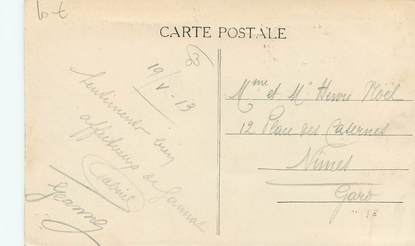 CARTE POSTALE
19/V-13
Sentiments bien
affectueux de Gannat
Gabriel
Jeanne
Mme et Mr Henri Noël
12 Place des Casernes
Nîmes
Gard